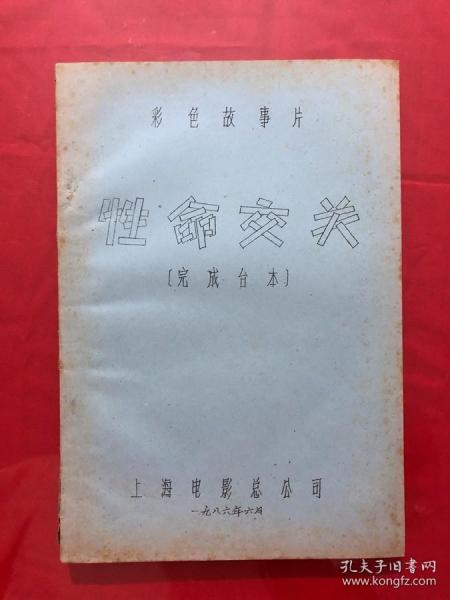 彩色故事片
性命交关
〔完成台本〕
上海电影总公司
一九八六年六月
孔夫子旧书网
www.kongfz.com